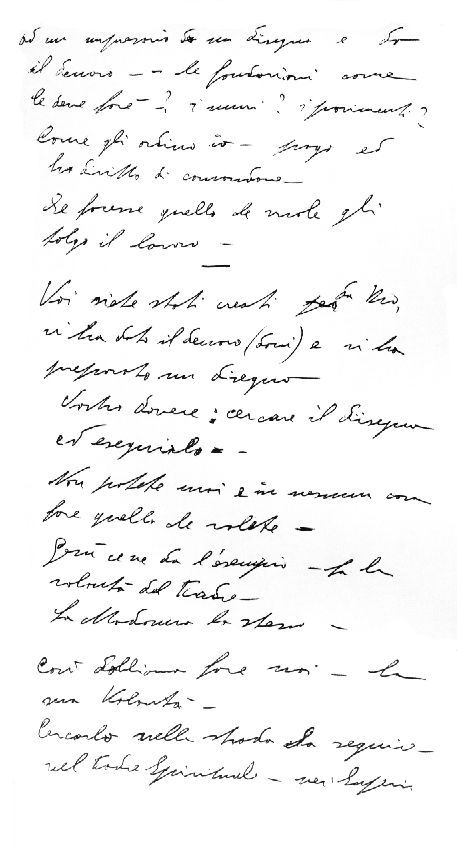 ad un impresario do un disegno e do
il denaro - - le fondazioni come
le deve fare - ? i muri ? i pavimenti ?
Come gli ordino io - pago ed
ho diritto di comandare -
Se facesse quello che vuole gli
tolgo il lavoro -
Voi siete stati creati da Dio,
vi ha dato il denaro (doni) e vi ha
preparato un disegno
Vostro dovere : cercare il disegno
ed eseguirlo - -
Non potete mai e in nessun caso
fare quello che volete -
Gesù ce ne da l'esempio - fa la
volontà del Padre -
La Madonna lo stesso -
Così dobbiamo fare noi - la
sua Volontà -
Cercarlo nella strada da seguire -
nel Padre Spirituale - nei Superiori